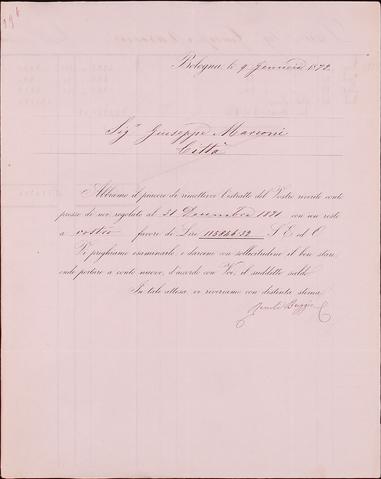 Bologna, le 9 Gennaio 1872
Sig.r Giuseppe Marconi
Città
Abbiamo il piacere di rimettervi l'estratto del Vostro riverito conto
presso di noi regolato al 31 Decembre 1871 con un resto
a vostro favore di Lire S. E. ed O.
Vi preghiamo esaminarlo e darcene con sollecitudine il ben stare
onde portare a conto nuovo, d'accordo con Voi, il suddetto saldo.
In tale attesa, vi riveriamo con distinta stima